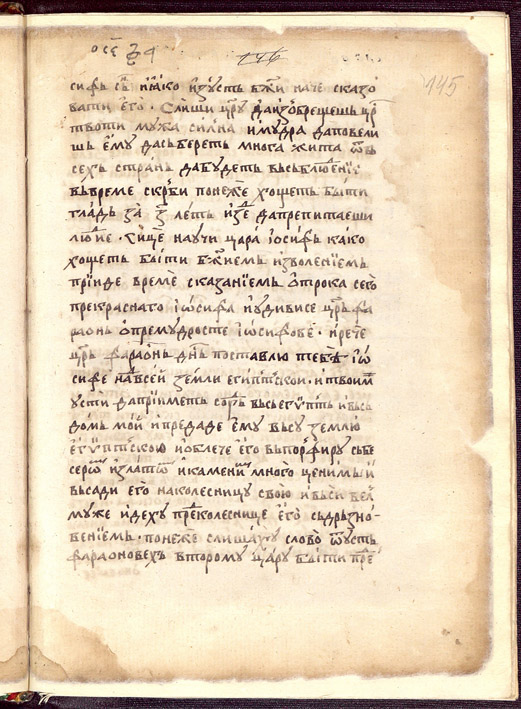 146
145
сифь сн҃ь ꙗко изꙋсть бж҃и наче сказо
вати его · Слиши цр҃ꙋ да изѡбрещешь цр҃
твоти мꙋжа силна и мꙋдра да повели
шь емꙋ да сьберетъ многа жита ѿвь
сехъ странь да бꙋдеть вьсьблюденїе
вьвреме скрьби понеже хощеть быти
гладь за з҃ летъ изе да препитаеши
людїе · Сице наꙋчи цара їосифь како
хощеть быти бж҃иемь изволенїемь
прїиде време сказанїемь отрока сего
прекраснаго їѡсифа и ꙋдивисе цр҃ь фа
раонь о премꙋдросте їѡсифове · и рече
цр҃ь фараѡнь дн҃ь поставлю тебѣ їѡ
сифе на всеи земли египтскои · и твоим
ꙋсти да прїиметь вьсь егѵпть и вьсь
домь мои и предаде емꙋ вьсꙋ землю
егѵптскою и облече его вьпорфирꙋ сьбе
серѡ и златѡ и камени многоценимыи
вьсади его на колесницꙋ свою и вьси вел
мꙋже идехꙋ пре колеснице его сьдрьзно
венїемь · понеже слишахꙋ слово ѿꙋсть
фараоновехъ второмꙋ царꙋ быти пре